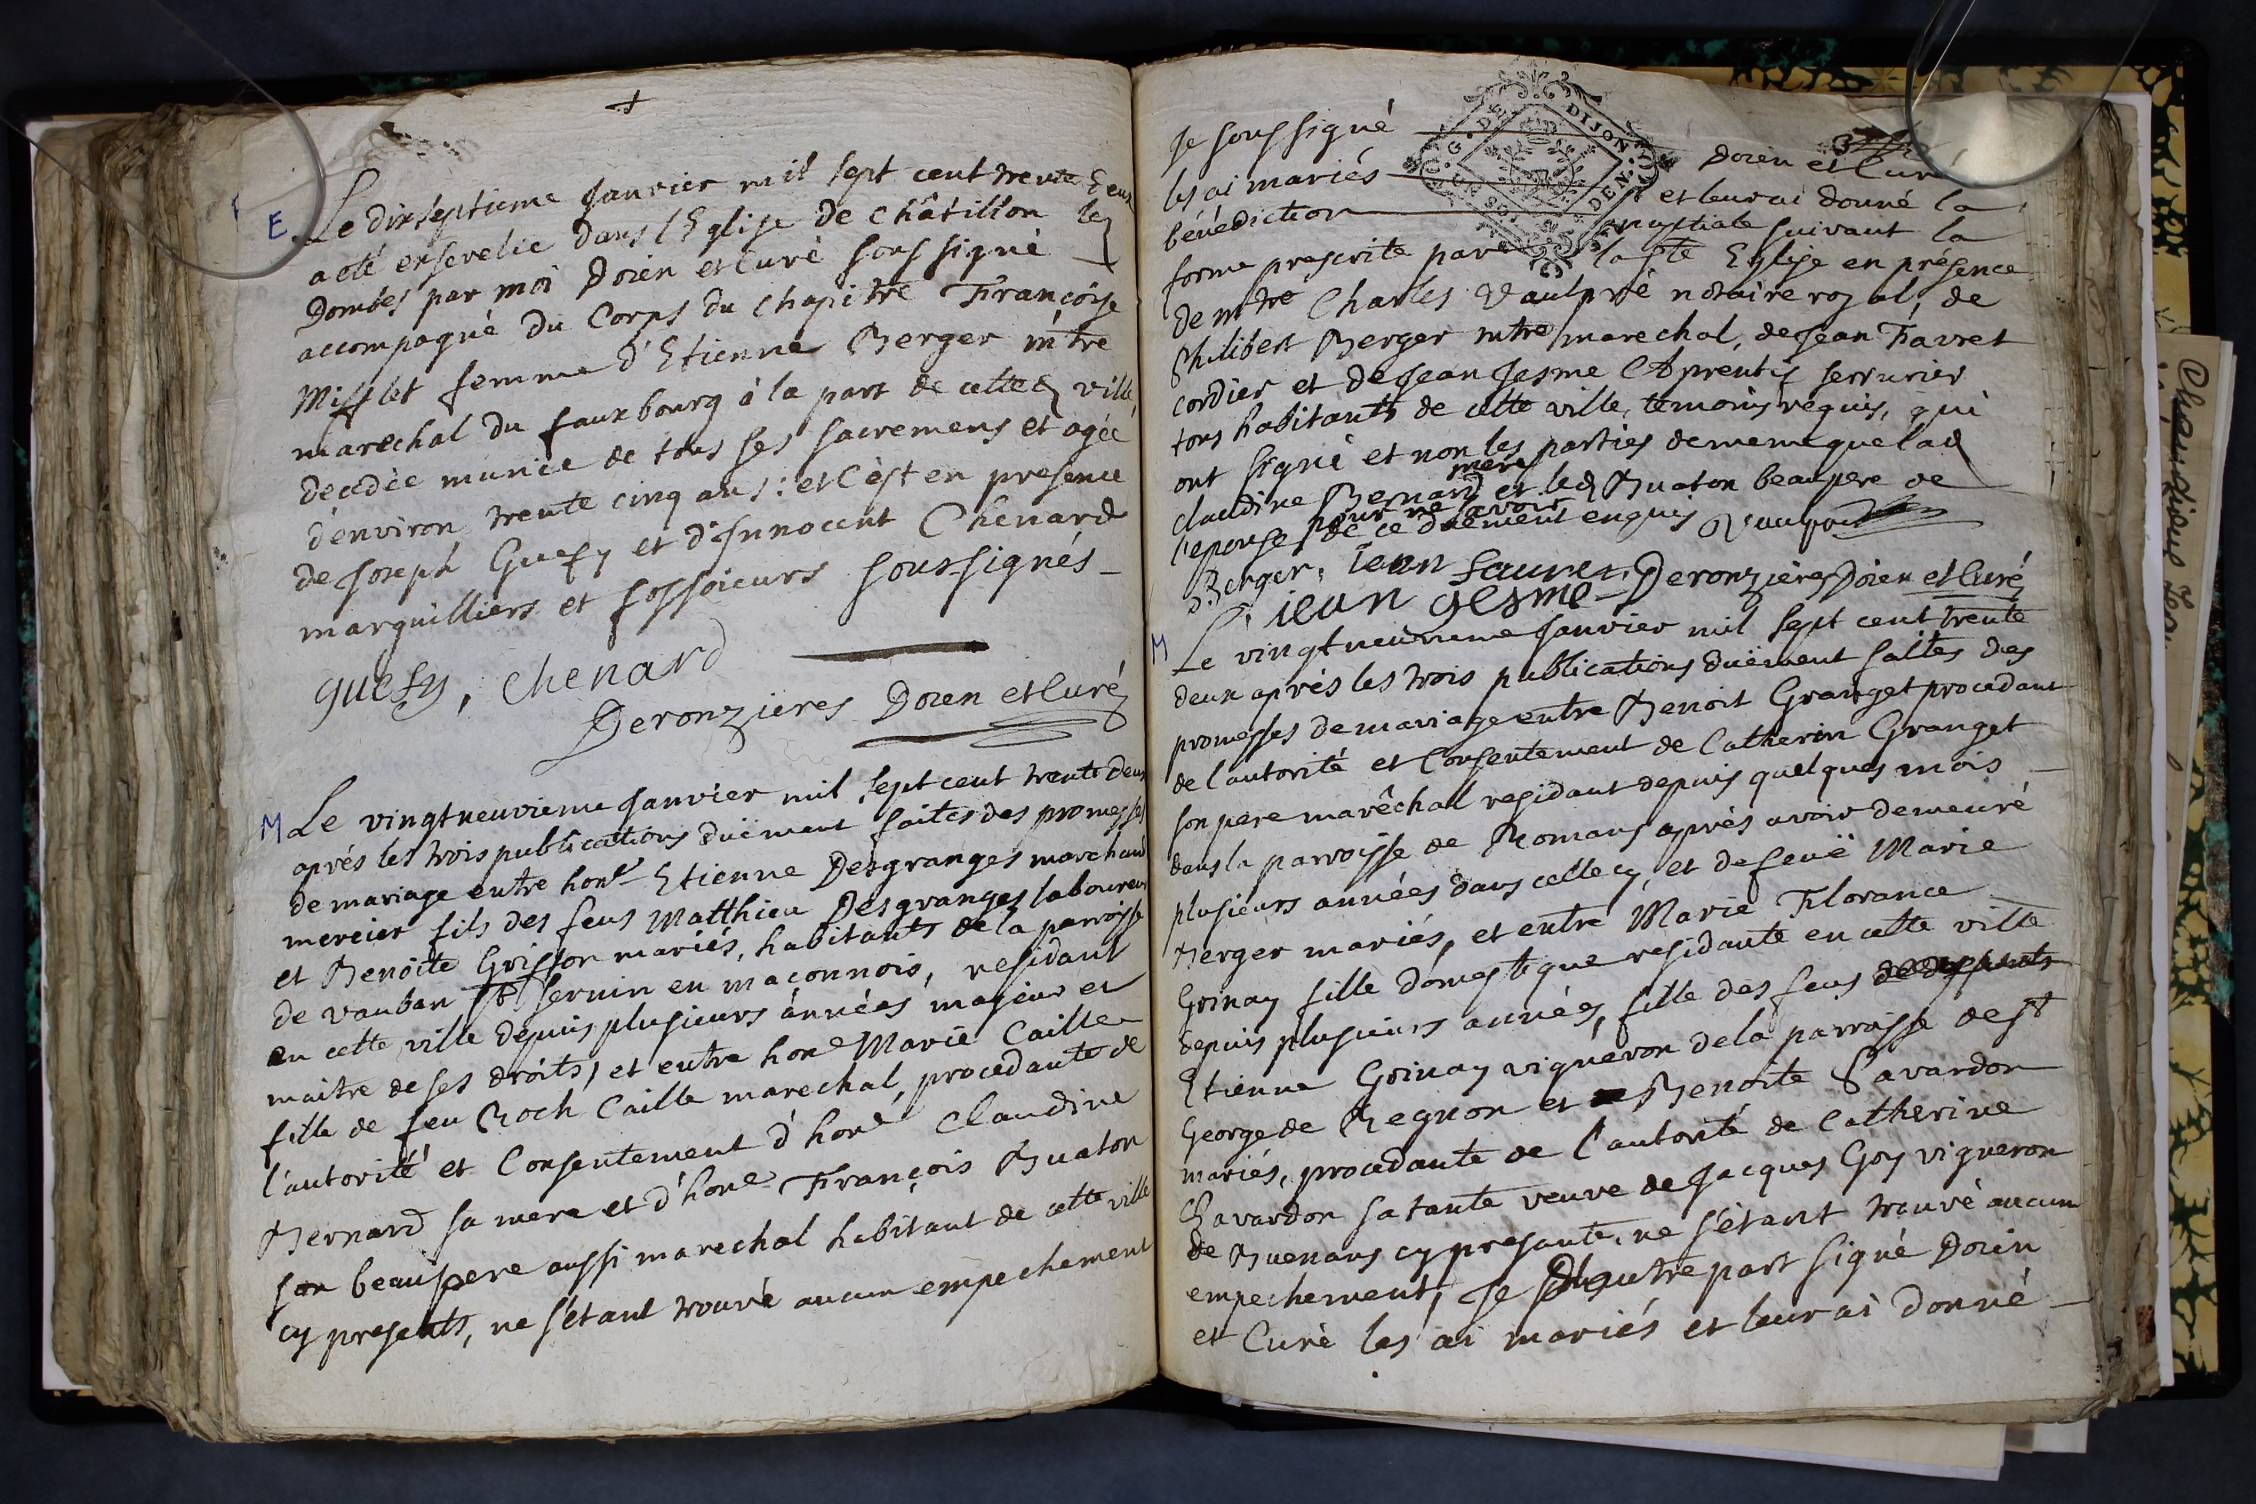 E. Le dixseptieme Janvier mil sept cent trente deux
a eté ensevelie dans l'Eglise de Châtillon les
Dombes par moi Doien et Curé soussigné
accompagné du Corps du Chapitre Françoise
Mifflet femme d'Etienne Berger mtre
marechal du fauxbourg à la part de cette d ville,
decedée munie de tous ses sacremens et agée
d'environ trente cinq ans: et c'est en presence
de Joseph Guesy et d'Innocent Chenard
marguilliers et fossoieurs soussignés
guesy, chenard
Deronzieres Doien et Curé
M Le vingtneuvieme Janvier mil sept cent trente deux
aprés les trois publications duëment faites des promesses
de mariage entre hone Etienne Desgranges marchand
mercier fils des feus Matthieu Desgranges laboureur
et Benoite Grisson mariés, habitants de la parroisse
de Vauban St Sernin en maconnois, residant
en cette ville depuis plusieurs années, majeur et
maitre de ses droits, et entre hone Marie Caille
fille de feu Roch Caille marechal, procedante de
l'autorité et Consentement d'hone Claudine
Bernard sa mere et d'hone François Buaton
son beaupere aussi marechal habitant de cette ville
cy presents, ne s'étant trouvé aucun empechement
Je soussigné Doien et Curé
les ai mariés et leur ai donné la
bénédiction nuptiale suivant la
forme prescrite par la Ste Eglise en présence
de mtre Charles Vaulpré notaire royal, de
Philibert Berger mtre marechal, de Jean Favret
cordier et de Jean Jesme Aprentis serrurier
tous habitants de cette ville, temoins requis, qui
ont signé et non les parties de meme que lad
mere
Claudine Bernard et led Buaton beaupere de
pour ne savoir
l'epouse de ce duëment enquis Vaulpré
Berger, iean fauret, Deronzieres Doien et Curé
iean gesme
M Le vingtneuvieme Janvier mil sept cent trente
deux aprés les trois publications duëment faites des
promesses de mariage entre Benoit Granget procedant
de l'autorité et Consentement de Catherin Granget
son pere marêchal residant depuis quelques mois
dans la parroisse de Romans aprés avoir demeuré
plusieurs années dans celle cy, et de feuë Marie
Berger mariés, et entre Marie Florance
Goinay fille domestique residante en cette ville
depuis plusieurs années, fille des feus
Etienne Goinay vigneron de la parroisse de St
George de Regnon et Benoite Savardon
mariés, procedante de l'autorité de Catherine
Chavardon sa tante veuve de Jacques Goy vigneron
de Buenans cy presante, ne s'étant trouvé aucun
empechement, Je d'autre part signé Doien
et Curé les ai mariés et leur ai donné
G. DE DIJON
DEN.